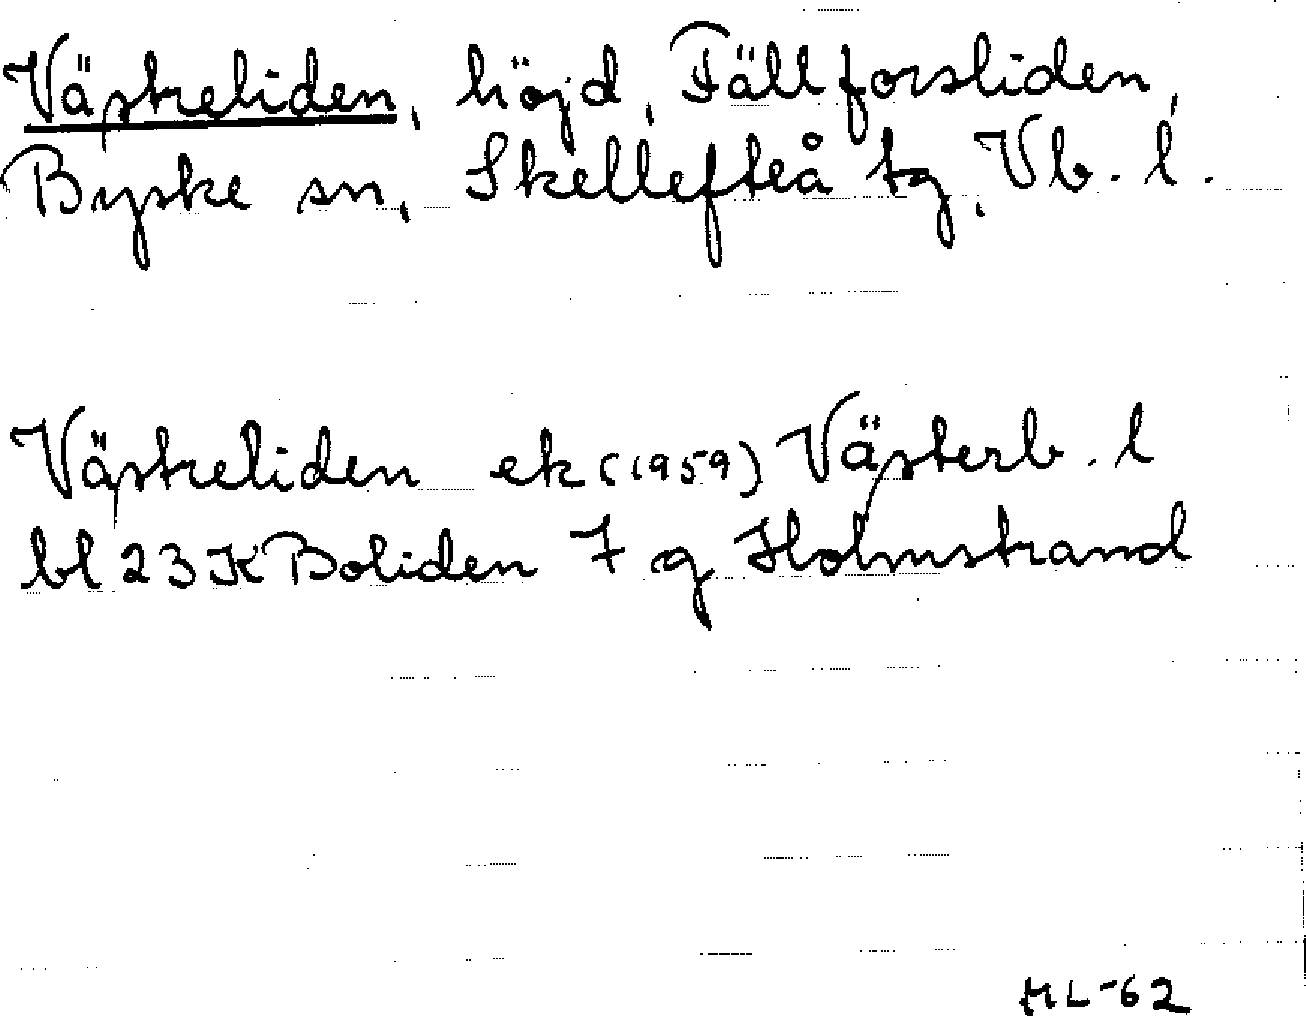 Västreliden, höjd, Fällforsliden,
Byske sn, Skellefteå tg, Vb. l.
Västreliden ek (1959) Västerb. l
bl 23K Boliden 7 g Holmstrand
ML-62